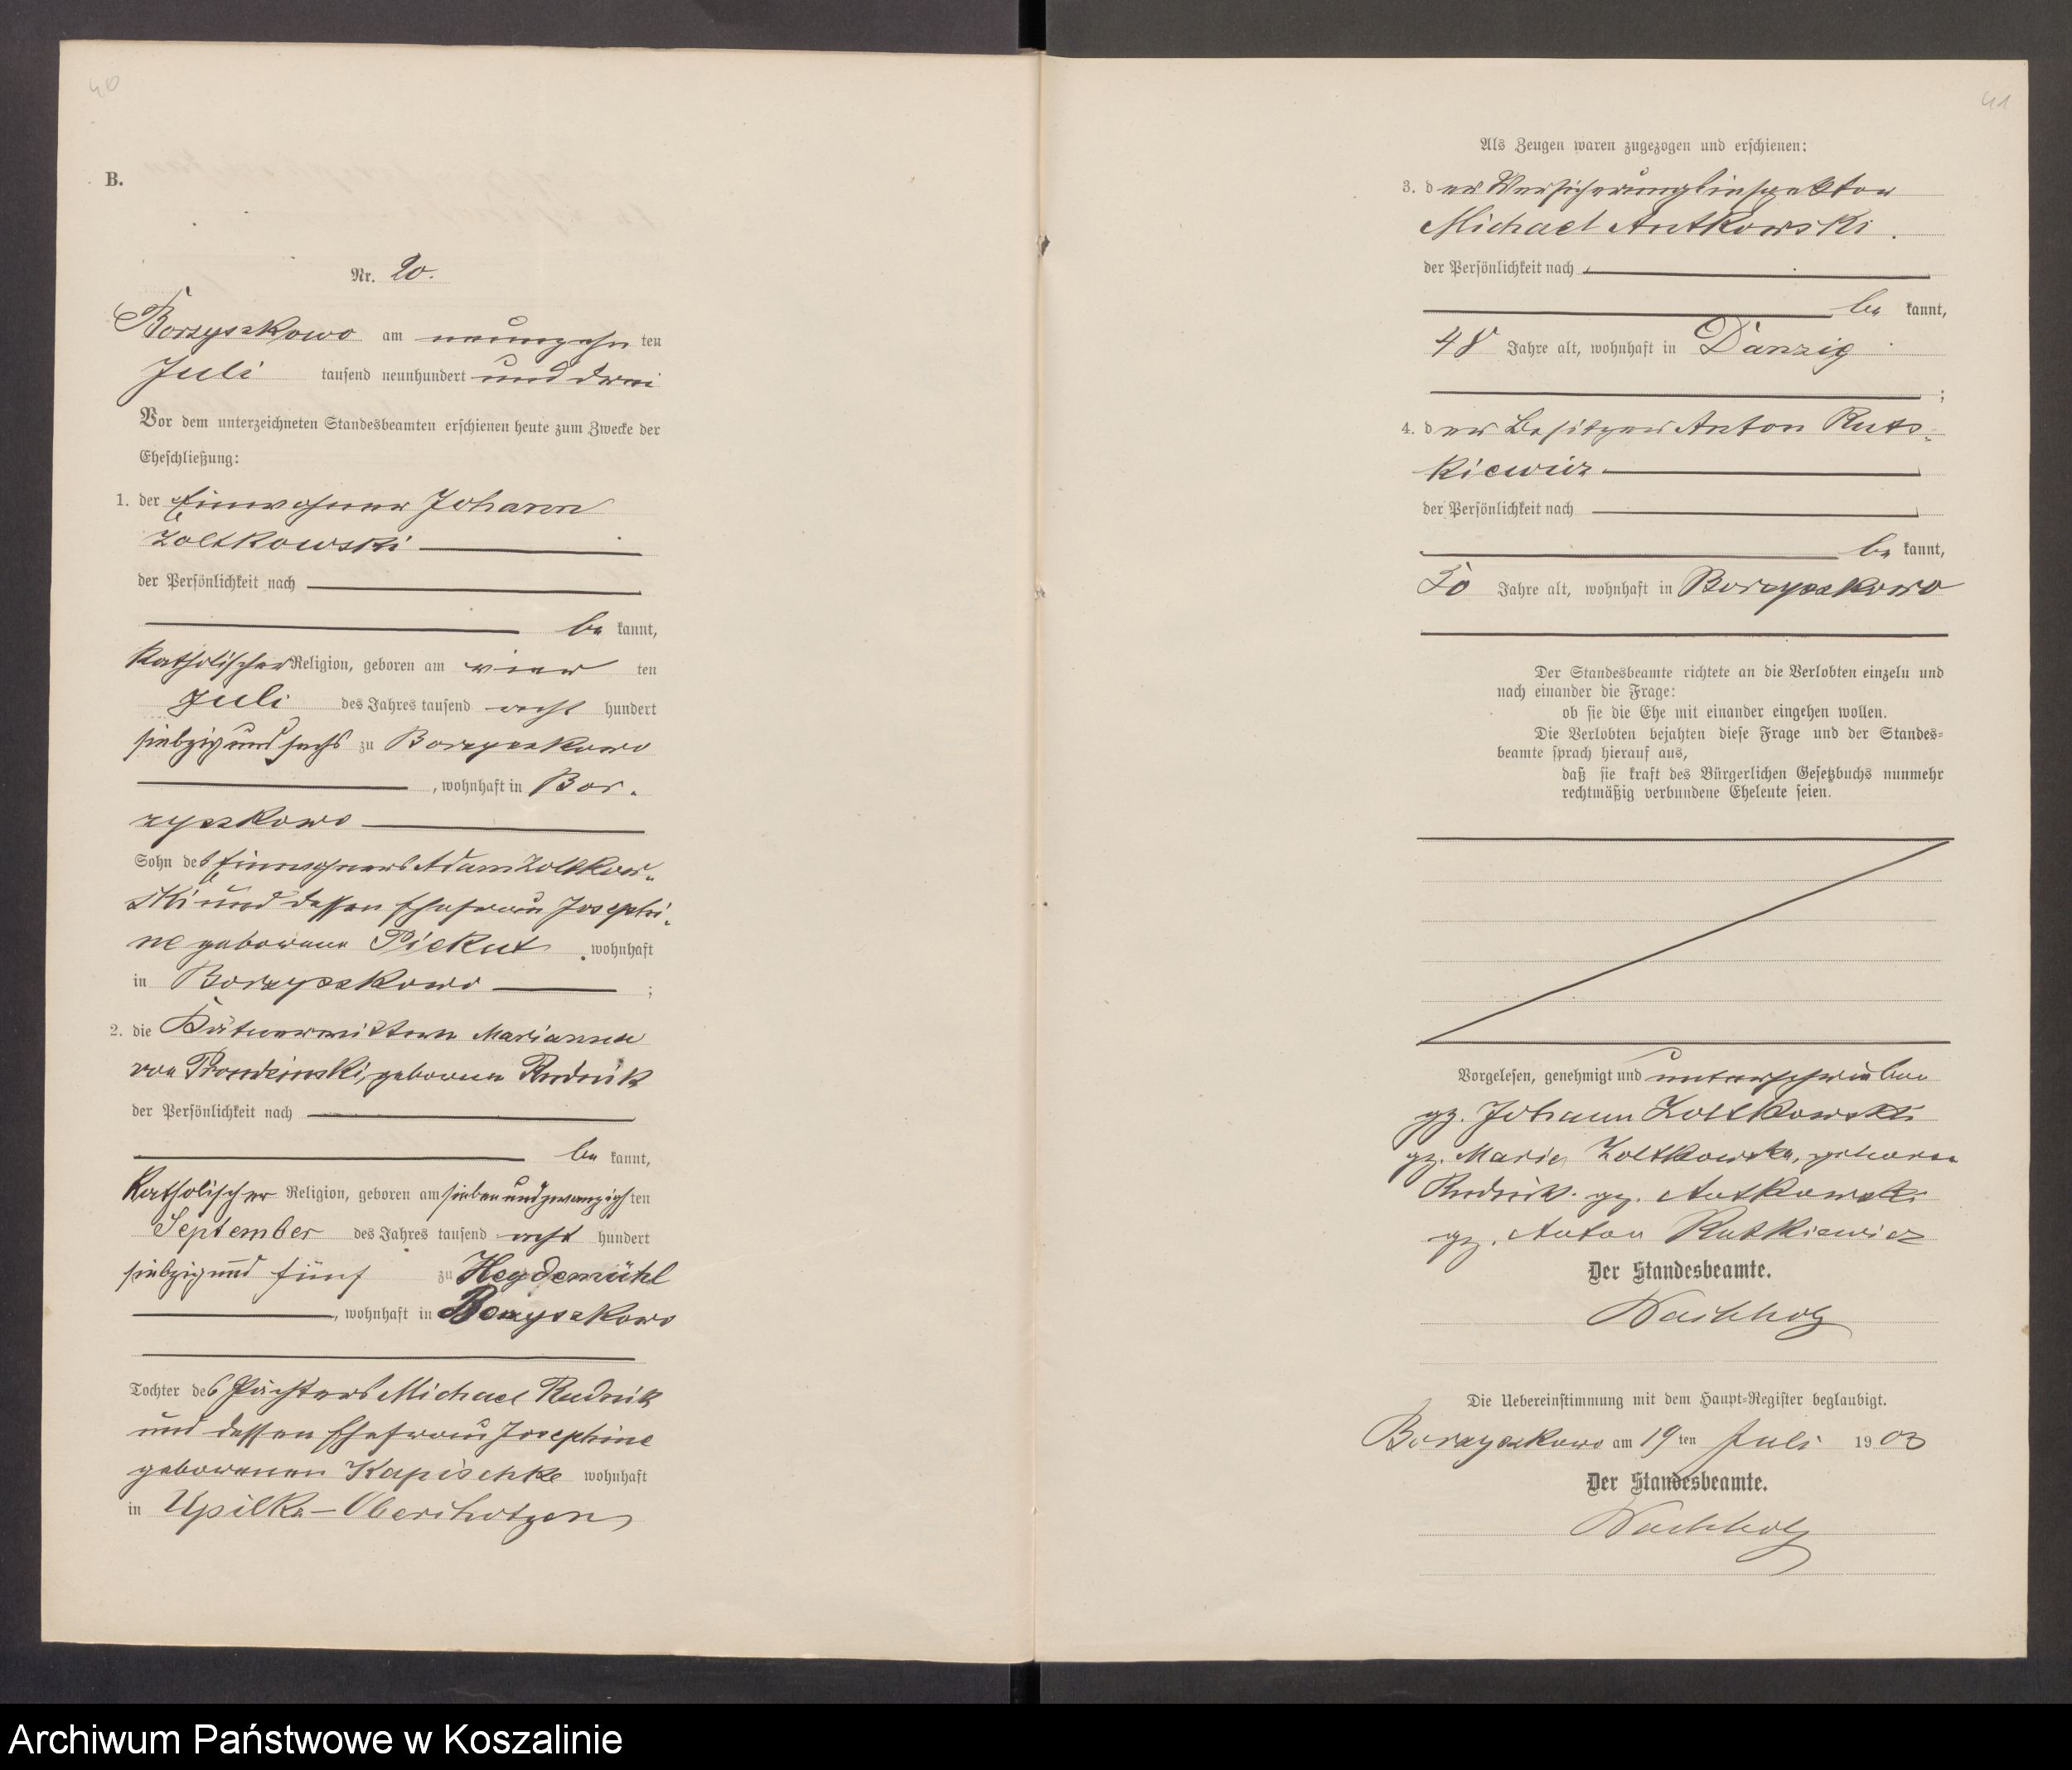 40
B.
Nr. 20.
Borzyszkowo am neunzehn ten
Juli tausend neunhundert und drei
Vor dem unterzeichneten Standesbeamten erschienen heute zum Zwecke der
Eheschließung:
1. der Einwohner Johann
Zoltkowski
der Persönlichkeit nach
be kannt,
katholischer Religion, geboren am vier ten
Juli des Jahres tausend acht hundert
siebzig und sechs zu Borzyszkowo
, wohnhaft in Bor-
zyszkowo
Sohn des Einwohners Adam Zoltkow-
ski und dessen Ehefrau Josephi-
ne geborene Piekut wohnhaft
in Borzyszkowo ;
2. die Kätnerwittwe Marianna
von Prondzinski, geborene Rudnik
der Persönlichkeit nach
be kannt,
katholischer Religion, geboren am siebenundzwanzigs ten
September des Jahres tausend acht hundert
siebzig und fünf zu Heydemühl
, wohnhaft in Borzyszkowo
Tochter des Pächters Michael Rudnik
und dessen Ehefrau Josephine
geborenen Kapischke wohnhaft
in Upilka-
41
Als Zeugen waren zugezogen und erschienen:
3. der Versicherungsinspektor
Michael Autkowski.
der Persönlichkeit nach
be kannt,
48 Jahre alt, wohnhaft in Danzig
;
4. der Besitzer Anton Rut-
kiewicz
der Persönlichkeit nach
be kannt,
50 Jahre alt, wohnhaft in Borzyszkowo
Der Standesbeamte richtete an die Verlobten einzeln und
nach einander die Frage:
ob sie die Ehe mit einander eingehen wollen.
Die Verlobten bejahten diese Frage und der Standes-
beamte sprach hierauf aus,
daß sie kraft des Bürgerlichen Gesetzbuchs nunmehr
rechtmäßig verbundene Eheleute seien.
Vorgelesen, genehmigt und unterschrieben
gz. Johann Zoltkowski
gz. Marie Zoltkowska, geborene
Rudnik. gz. Autkowski
gz. Anton Rutkiewicz
Der Standesbeamte.
Wachholz
Die Uebereinstimmung mit dem Haupt-Register beglaubigt.
Borzyszkowo am 19 ten Juli 19 03
Der Standesbeamte.
Wachholz
Archiwum Państwowe w Koszalinie